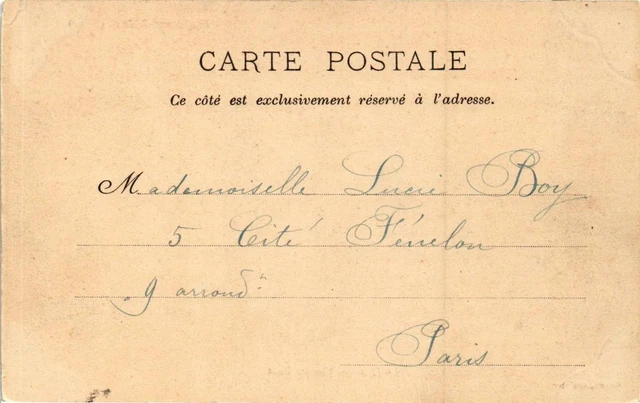 CARTE POSTALE
Ce côté est exclusivement réservé à l'adresse.
Mademoiselle Lucie Boy
5 Cité Fénelon
9 arrond.t
Paris